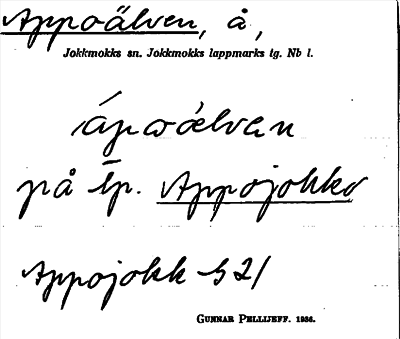 Appoälven, å,
Jokkmokks sn. Jokkmokks lappmarks tg. Nb l.
ápoälven
på lp. Appojokko
Appojokk b 21
GUNNAR PELLIJEFF. 1936.